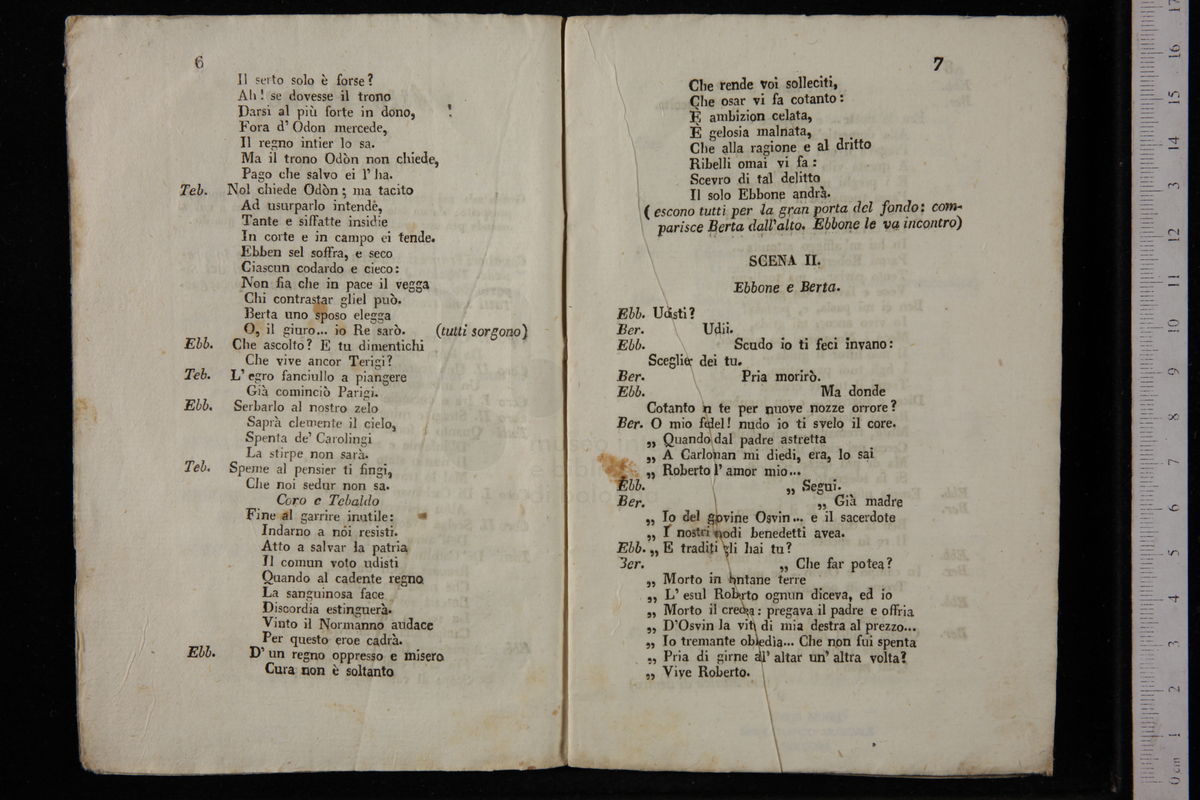 6
Il serto solo è forse?
Ah! se dovesse il trono
Darsi al più forte in dono,
Fora d' Odon mercede,
Il regno intier lo sa.
Ma il trono Odòn non chiede,
Pago che salvo ei l' ha.
Teb. Nol chiede Odòn; ma tacito
Ad usurparlo intende,
Tante e siffatte insidie
In corte e in campo ei tende.
Ebben sel soffra, e seco
Ciascun codardo e cieco:
Non fia che in pace il vegga
Chi contrastar gliel può.
Berta uno sposo elegga
O, il giuro... io Re sarò. (tutti sorgono)
Ebb. Che ascolto? E tu dimentichi
Che vive ancor Terigi?
Teb. L' egro fanciullo a piangere
Già cominciò Parigi.
Ebb. Serbarlo al nostro zelo
Saprà clemente il cielo,
Spenta de' Carolingi
La stirpe non sarà.
Teb. Speme al pensier ti fingi,
Che noi sedur non sa.
Coro e Tebaldo
Fine al garrire inutile:
Indarno a noi resisti.
Atto a salvar la patria
Il comun voto udisti
Quando al cadente regno
La sanguinosa face
Discordia estinguerà.
Vinto il Normanno audace
Per questo eroe cadrà.
Ebb. D' un regno oppresso e misero
Cura non è soltanto
7
Che rende voi solleciti,
Che osar vi fa cotanto:
È ambizion celata,
È gelosia malnata,
Che alla ragione e al dritto
Ribelli omai vi fa:
Scevro di tal delitto
Il solo Ebbone andrà.
(escono tutti per la gran porta del fondo: com-
parisce Berta dall'alto. Ebbone le va incontro)
SCENA II.
Ebbone e Berta.
Ebb. Udisti?
Ber. Udii.
Ebb. Scudo io ti feci invano:
Sceglier dei tu.
Ber. Pria morirò.
Ebb. Ma donde
Cotanto in te per nuove nozze orrore?
Ber. O mio fidel! nudo io ti svelo il core.
„ Quando dal padre astretta
„ A Carlonan mi diedi, era, lo sai
„ Roberto l' amor mio...
Ebb. „ Segui.
Ber. „ Già madre
„ Io del govine Osvin... e il sacerdote
„ I nostri nodi benedetti avea.
Ebb. „ E traditi gli hai tu?
Ber. „ Che far potea?
„ Morto in lontane terre
„ L' esul Roberto ognun diceva, ed io
„ Morto il credea: pregava il padre e offria
„ D'Osvin la vita di mia destra al prezzo...
„ Io tremante obbedia... Che non fui spenta
„ Pria di girne all' altar un' altra volta?
„ Vive Roberto.